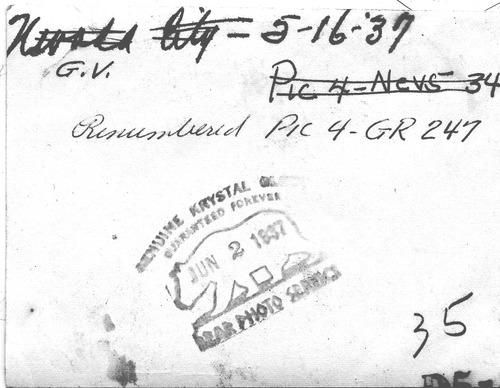 Nevada City - 5-16-37
G.V.
Pic 4-Nevs 34
Renumbered Pic 4-GR 247
GENUINE KRYSTAL
GUARANTEED FOREVER
JUN 2 1937
BEAR PHOTO SERVICE
35